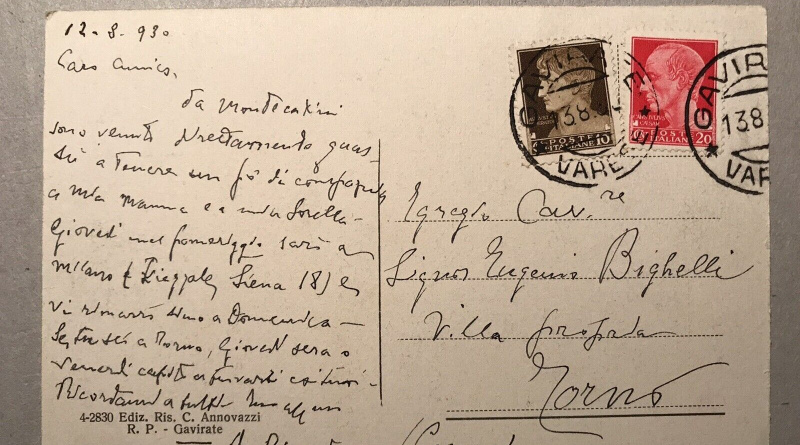 12-8-930
Caro Amico,
da Montecatini
sono venuto direttamente quas-
sù a tenere un pò di compagnia
a mia mamma e a mia sorella -
Giovedì nel pomeriggio sarò a
Milano ( Siena 18) e
vi rimarrò sino a Domenica -
Se tu sei a Torno, Giovedì sera o
Venerdì
Ricordami a tutti
4-2830 Ediz. Ris. C. Annovazzi
R. P. - Gavirate
GAVIRATE
13.8.
VARESE
POSTE ITALIANE 10
POSTE ITALIANE 20
GAVIR
138
VAR
Egregio Cav.re
Signor Eugenio Bighelli
Villa propria
Torno